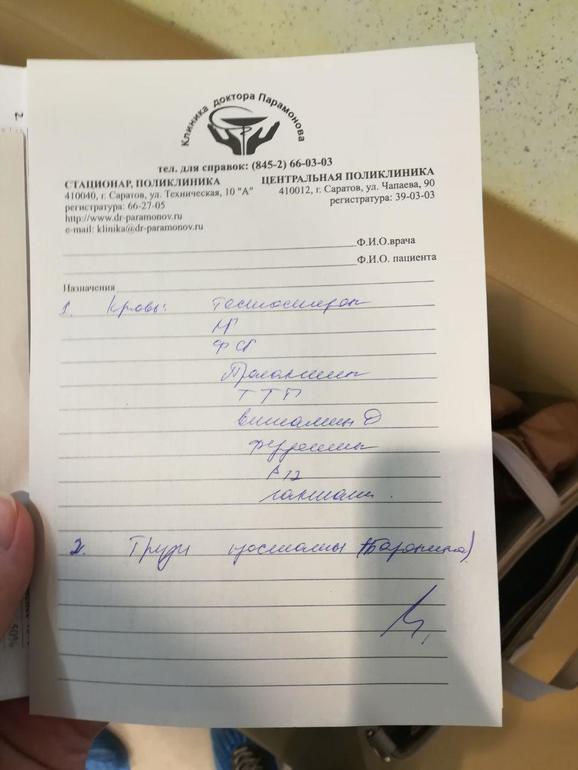 Клиника доктора Парамонова
тел. для справок: (845-2) 66-03-03
СТАЦИОНАР, ПОЛИКЛИНИКА
410040, г. Саратов, ул. Техническая, 10 "А"
регистратура: 66-27-05
http://www.dr-paramonov.ru
e-mail: klinika@dr-paramonov.ru
ЦЕНТРАЛЬНАЯ ПОЛИКЛИНИКА
410012, г. Саратов, ул. Чапаева, 90
регистратура: 39-03-03
Ф.И.О.врача
Ф.И.О. пациента
Назначения
1. Кровь: тестостерон
ЛГ
ФСГ
Пролактин
ТТГ
витамин Д
ферритин
В12
2. Трузи простаты